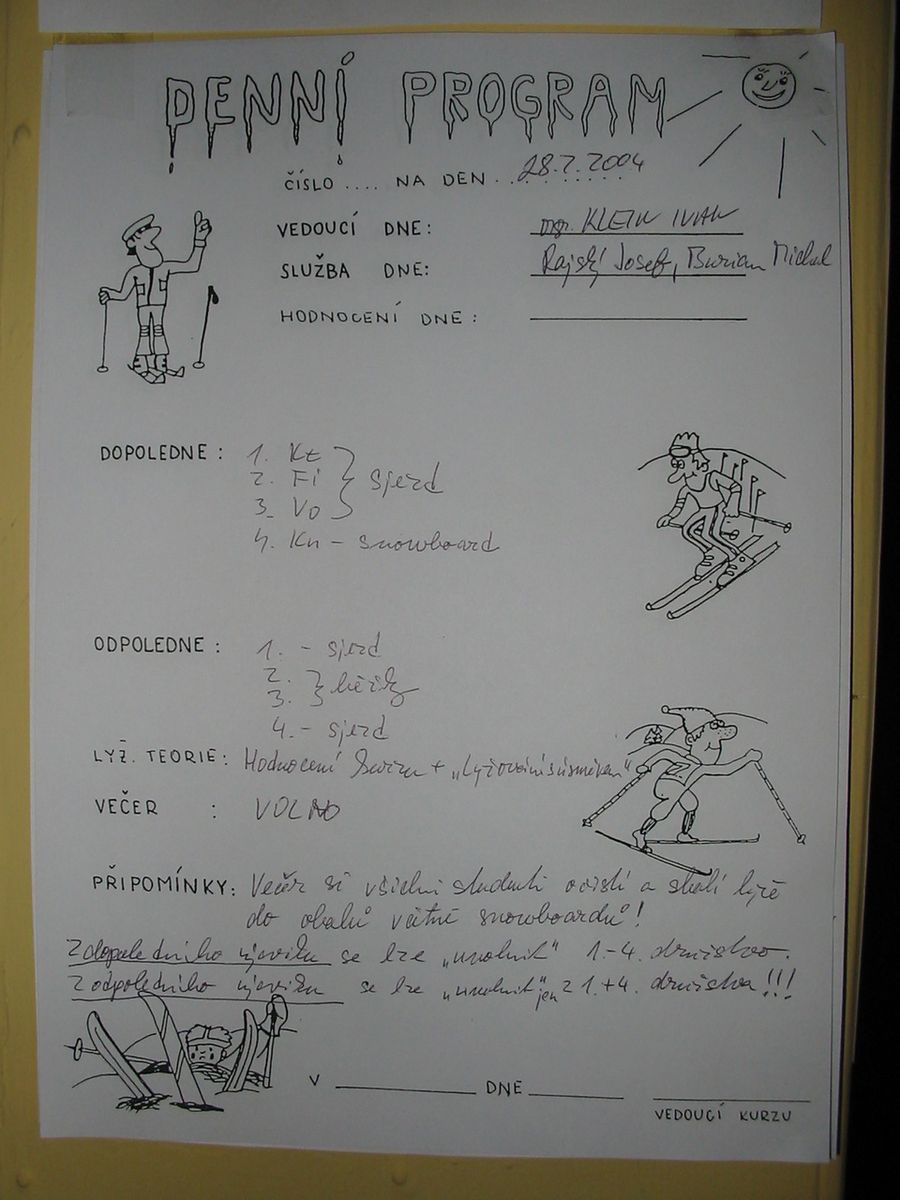 DENNÍ PROGRAM
ČÍSLO .... NA DEN ..28.2.2004
VEDOUCÍ DNE: mgr. KLEIN IVAN
SLUŽBA DNE: Rajský Josef, Burian Michal
HODNOCENÍ DNE:
DOPOLEDNE: 1. Kt
2. Fi } sjezd
3. Vo
4. Kn - snowboard
ODPOLEDNE: 1. - sjezd
2.
3. } běžky
4. - sjezd
LYŽ. TEORIE: Hodnocení kurzu + „Lyžování s úsměvem"
VEČER : VOLNO
PŘIPOMÍNKY: Večer si všichni studenti očistí a sbalí lyže
do obalů včetně snowboardů!
Z dopoledního výcviku se lze „uvolnit" 1-4. družstvo.
Z odpoledního výcviku se lze „uvolnit" jen z 1.+4. družstva!!!
V DNE
VEDOUCÍ KURZU